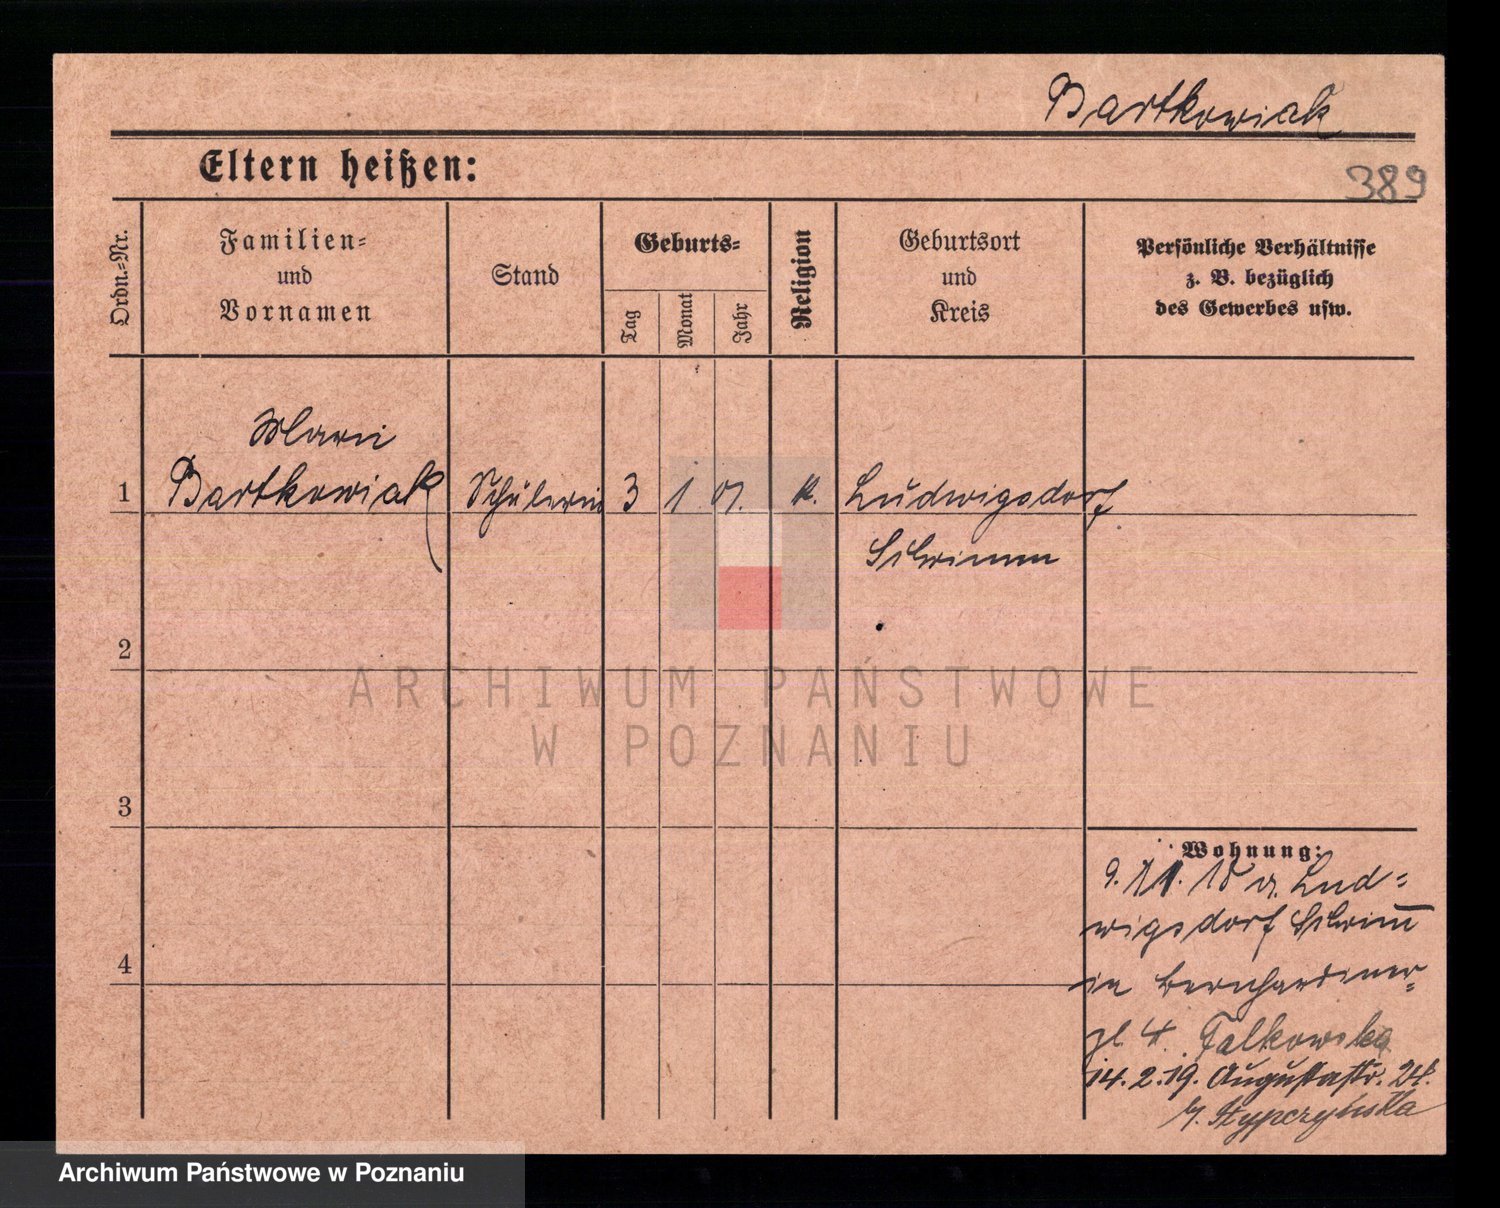 Bartkowiak
Eltern heißen:
389
Ordn.=Nr.
Familien=
und
Vornamen
Stand
Geburts=
Tag
Monat
Jahr
Religion
Geburtsort
und
Kreis
Persönliche Verhältnisse
z. B. bezüglich
des Gewerbes usw.
Marie
1 Bartkowiak Schülerin 3 1 01. k. Ludwigsdorf
Schrimm
2
3
4
Wohnung:
9. 11. 18 v. Lud=
wigsdorf Schrimm
in Bernhardiner=
pl 4. Falkowska
14. 2. 19. Augustastr. 24.
Stypczyńska
ARCHIWUM PAŃSTWOWE
W POZNANIU
Archiwum Państwowe w Poznaniu